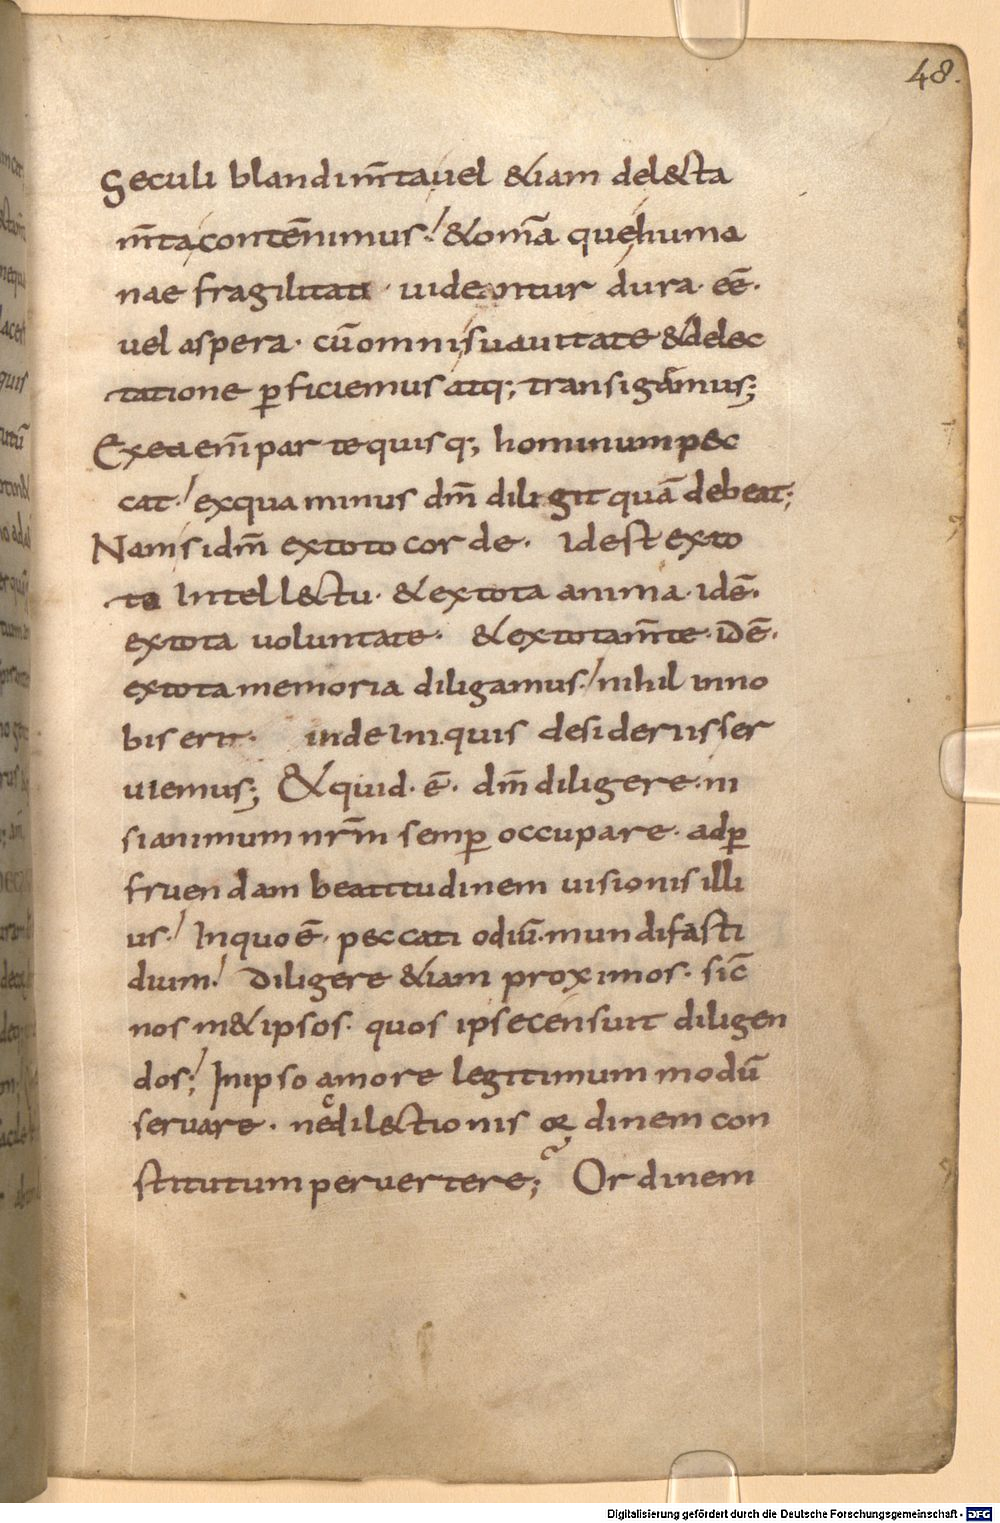 48.
Seculi blandim̄ta uel &iam del&ta
m̄ta contēnimus; & om̄a que huma
nae fragilitati · uidentur dura · eē ·
uel aspera · cū omni suauitate & delec
tatione ꝑficiemus atq; transigamus;
Ex ea eni̅ parte quisq; hominum pec
cat; ex qua minus dm̄ diligit quā debeat;
Nam si dm̄ ex toto corde · id est ex to
to Intellectu · & ex tota anima · idē ·
ex tota uoluntate · & ex tota m̄te · idē ·
ex tota memoria diligamus; nihil in no
bis erit · inde Iniquis desideriis ser
uiemus; & quid · ē · dm̄ diligere · ni
si animum nrm̄ semꝑ occupare · ad ꝑ
fruendam beatitudinem uisionis illi
us; In quo ē · peccati odiū · mundi fasti
dium; Diligere &iam proximos · sic̄
nos m&ipsos · quos ipse censuit diligen
dos; In ipso amore legitimum modū
seruare · nę dilectionis ordinem con
stitutum peruertere; Ordinem
Digitalisierung gefördert durch die Deutsche Forschungsgemeinschaft - DFG